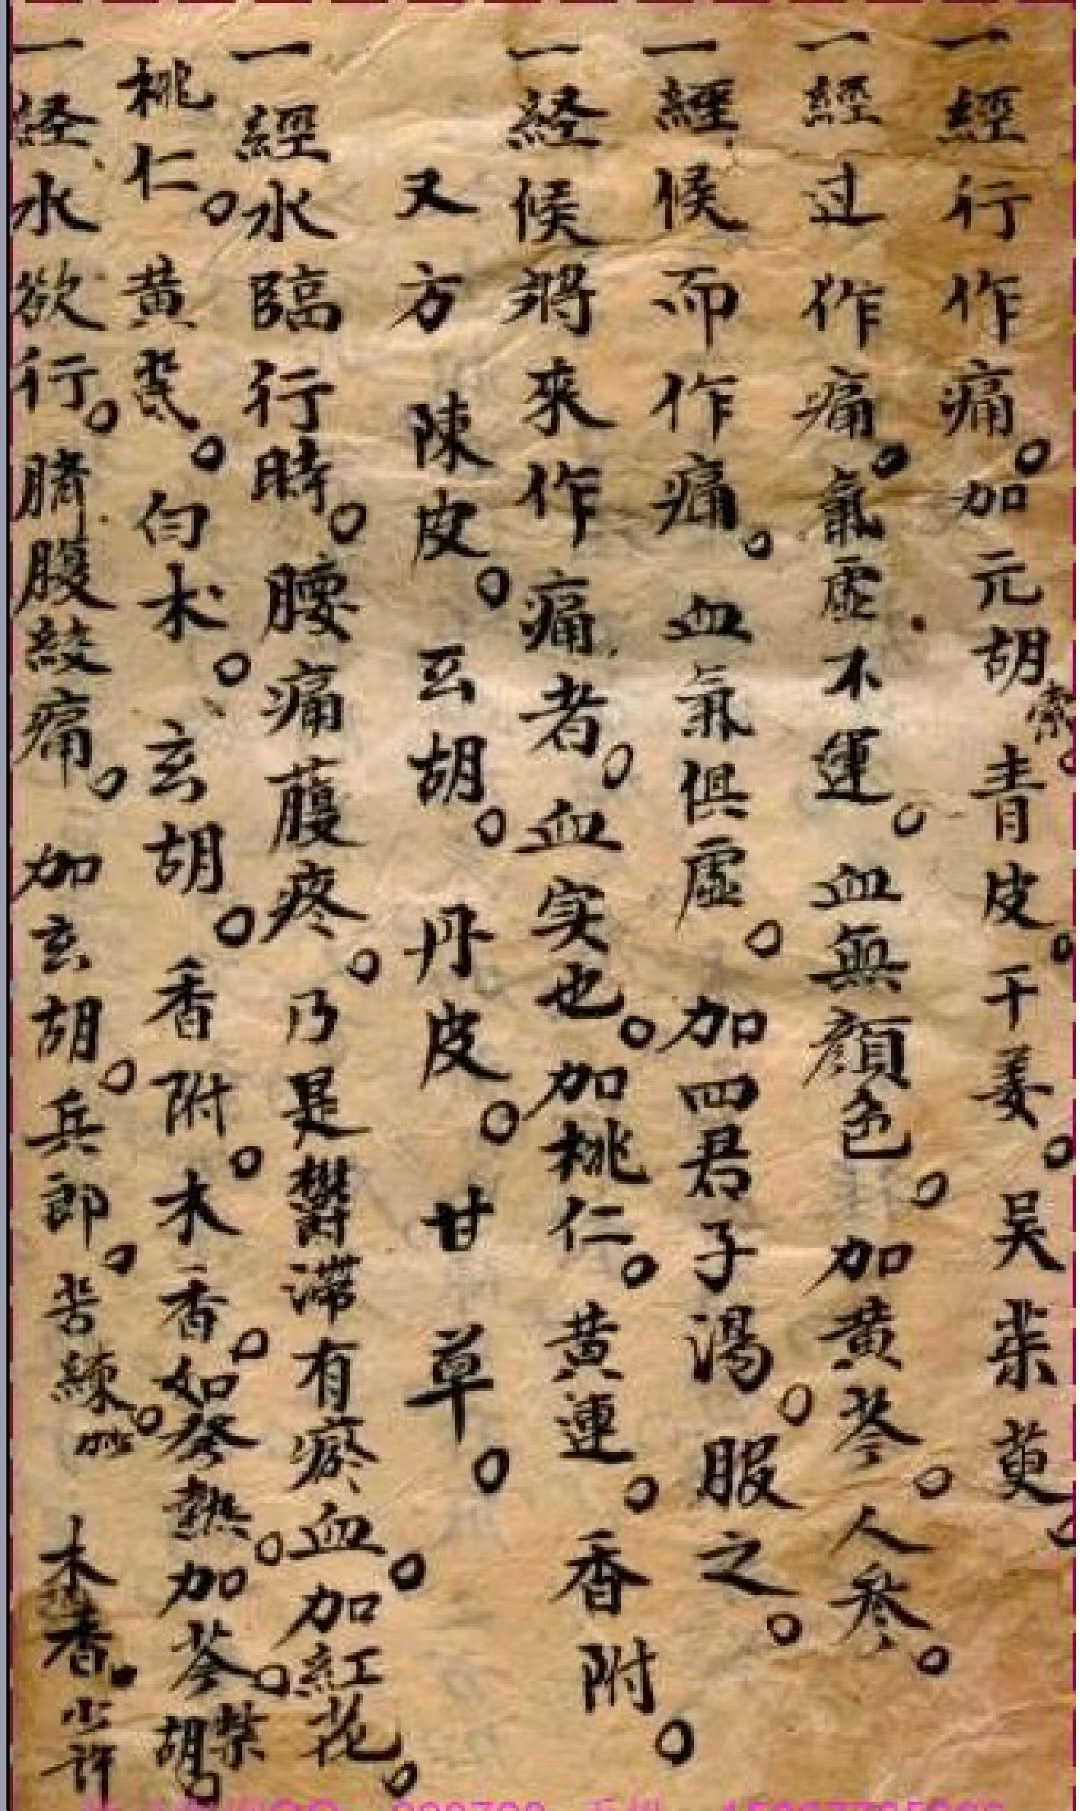 一經行作痛。加元胡索。青皮。干姜。吴茱萸。
一經过作痛。氣虛不運。血無顔色。加黄芩。人參。
一經候而作痛。血氣俱虛。加四君子湯。服之。
一経候將來作痛者。血实也。加桃仁。黄連。香附。
又方 陳皮。玄胡。丹皮。甘草。
一經水臨行時。腰痛腹疼。乃是鬱滞有瘀血。加紅花。
桃仁。黄芪。白术。玄胡。香附。木香。如發熱。加芩。柴胡
一経水欲行。臍腹絞痛。加玄胡。兵郎。苦練。炒 木香。少許